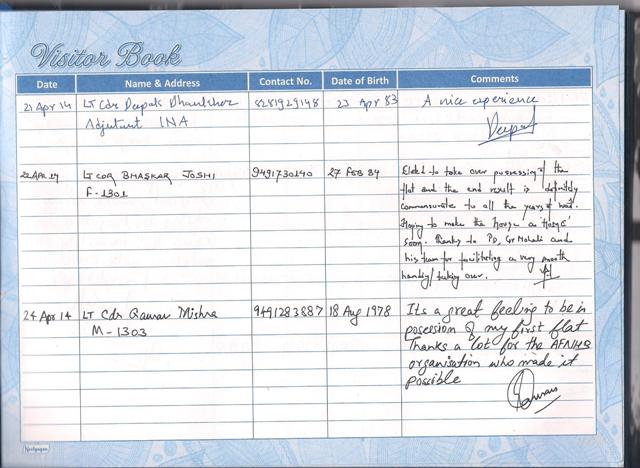 Visitor Book
Date Name & Address Contact No. Date of Birth Comments
21 Apr 14 LT Cdr Deepak 8281929148 23 Apr 83 A nice experience
Adjutant INA Deepak
22 APR 14 LT CDR BHASKAR JOSHI 9491730140 27 FEB 84 Elated to take over possession of the
F-1301 flat and the end result is definitely
commensurate to all the years of wait.
Hoping to make the house a 'Home'
soon. Thanks to PD, Cdr Mohali and
his team for facilitating a very smooth
handing/taking over.
24 Apr 14 LT Cdr Gaurav Mishra 9491283887 18 Aug 1978 Its a great feeling to be in
M-1303 possession of my first flat
Thanks a lot for the AFNHB
organisation who made it
possible
Gaurav
Neelgagan